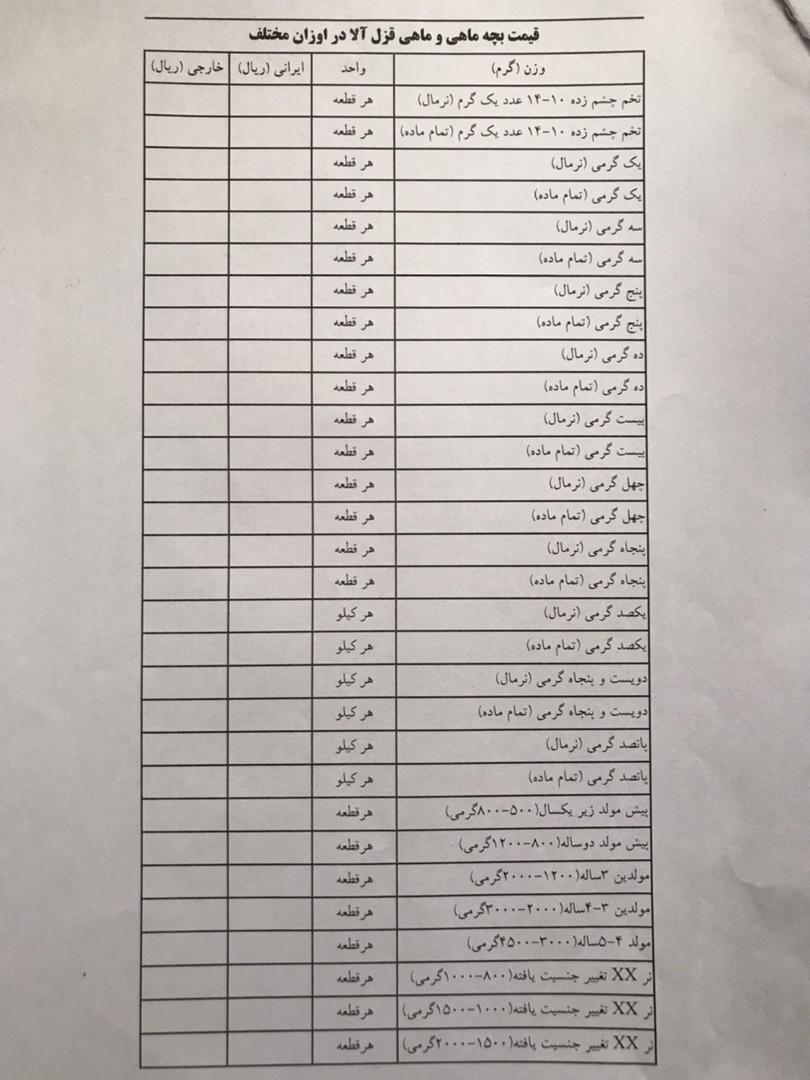 قیمت بچه ماهی و ماهی قزل آلا در اوزان مختلف
وزن (گرم) واحد ایرانی (ریال) خارجی (ریال)
تخم چشم زده ۱۰-۱۴ عدد یک گرم (نرمال) هر قطعه
تخم چشم زده ۱۰-۱۴ عدد یک گرم (تمام ماده) هر قطعه
یک گرمی (نرمال) هر قطعه
یک گرمی (تمام ماده) هر قطعه
سه گرمی (نرمال) هر قطعه
سه گرمی (تمام ماده) هر قطعه
پنج گرمی (نرمال) هر قطعه
پنج گرمی (تمام ماده) هر قطعه
ده گرمی (نرمال) هر قطعه
ده گرمی (تمام ماده) هر قطعه
بیست گرمی (نرمال) هر قطعه
بیست گرمی (تمام ماده) هر قطعه
چهل گرمی (نرمال) هر قطعه
چهل گرمی (تمام ماده) هر قطعه
پنجاه گرمی (نرمال) هر قطعه
پنجاه گرمی (تمام ماده) هر قطعه
یکصد گرمی (نرمال) هر کیلو
یکصد گرمی (تمام ماده) هر کیلو
دویست و پنجاه گرمی (نرمال) هر کیلو
دویست و پنجاه گرمی (تمام ماده) هر کیلو
پانصد گرمی (نرمال) هر کیلو
پانصد گرمی (تمام ماده) هر کیلو
پیش مولد زیر یکسال(۵۰۰-۸۰۰گرمی) هرقطعه
پیش مولد دوساله(۸۰۰-۱۲۰۰گرمی) هرقطعه
مولدین ۳ساله(۱۲۰۰-۲۰۰۰گرمی) هرقطعه
مولدین ۳-۴ساله(۲۰۰۰-۳۰۰۰گرمی) هرقطعه
مولد ۴-۵ساله(۳۰۰۰-۴۵۰۰گرمی) هرقطعه
نر XX تغییر جنسیت یافته(۸۰۰-۱۰۰۰گرمی) هرقطعه
نر XX تغییر جنسیت یافته(۱۰۰۰-۱۵۰۰گرمی) هرقطعه
نر XX تغییر جنسیت یافته(۱۵۰۰-۲۰۰۰گرمی) هرقطعه